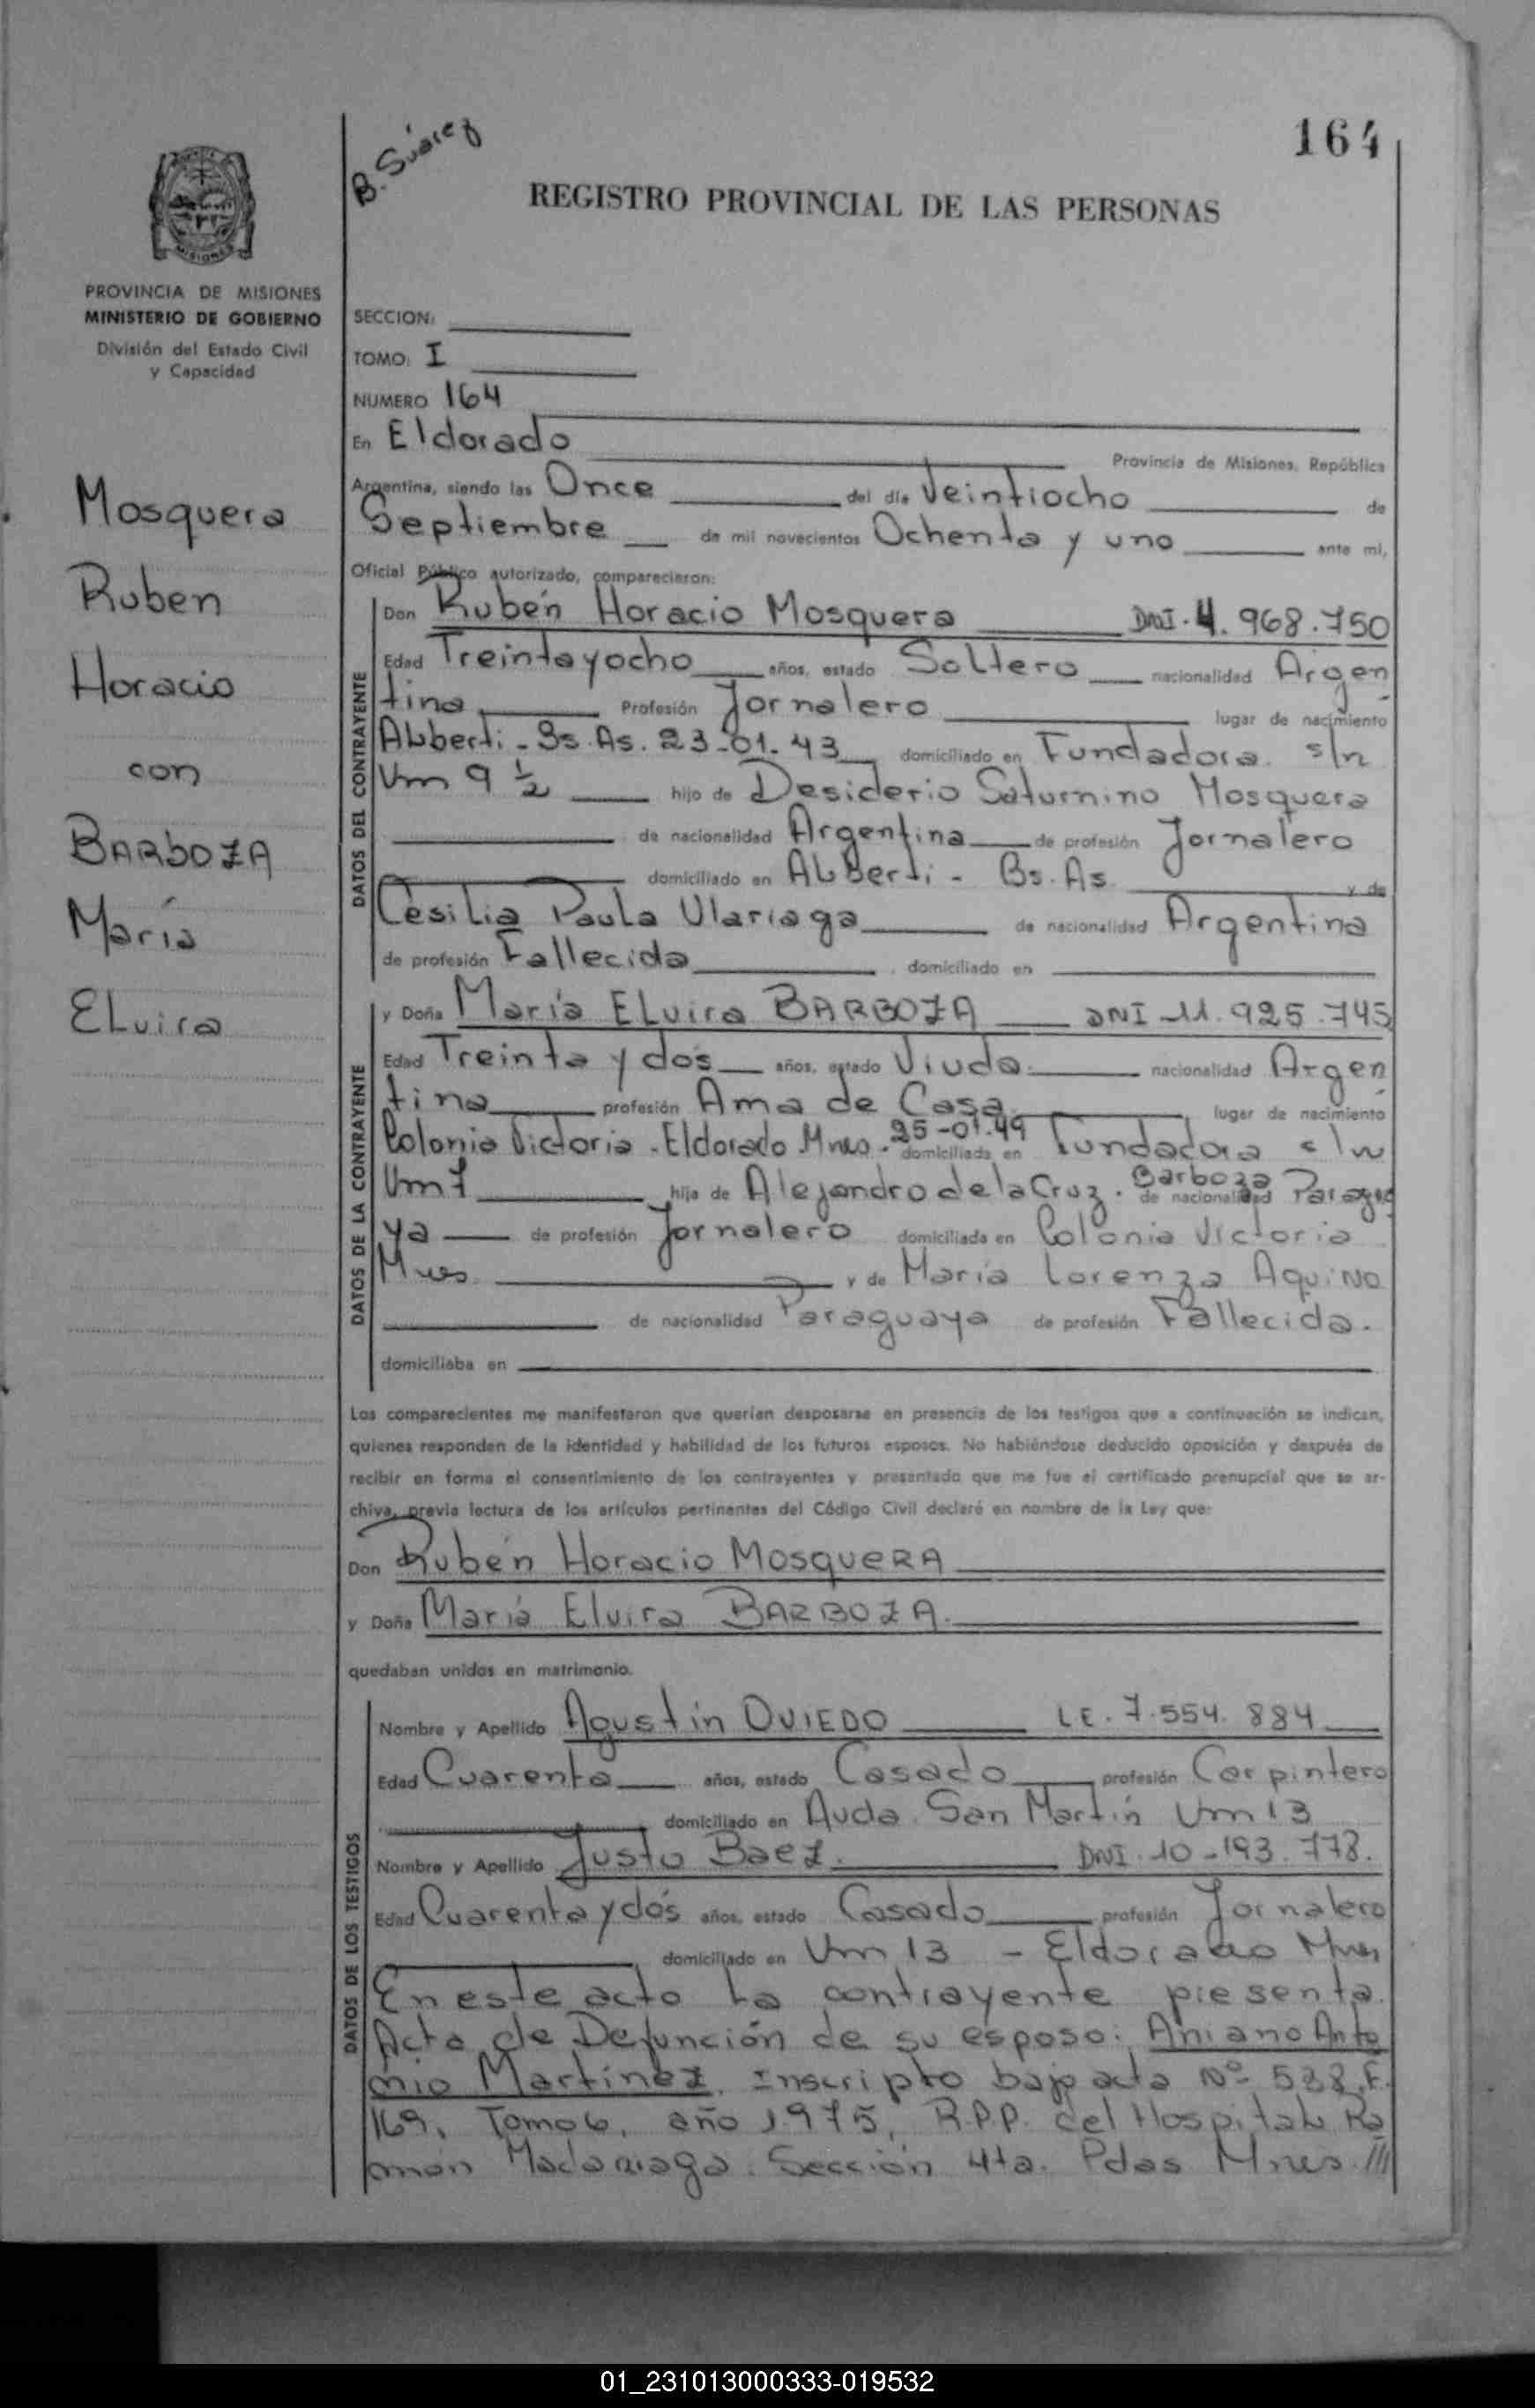 164
B. Suárez
REGISTRO PROVINCIAL DE LAS PERSONAS
MISIONES
PROVINCIA DE MISIONES
MINISTERIO DE GOBIERNO
División del Estado Civil
y Capacidad
Mosquera
Ruben
Horacio
con
BARBOZA
María
ELvira
SECCION:
TOMO: I
NUMERO 164
En Eldorado Provincia de Misiones, República
Argentina, siendo las Once del día Veintiocho de
Septiembre de mil novecientos Ochenta y uno ante mi,
Oficial Público autorizado, comparecieron:
DATOS DEL CONTRAYENTE
Don Rubén Horacio Mosquera DNI. 4.968.750
Edad Treintayocho años, estado Soltero nacionalidad Argen
tina Profesión Jornalero lugar de nacimiento
ALberti - Bs. As. 23-01-43 domiciliado en Fundadora s/n
Km 9 1/2 hijo de Desiderio Saturnino Mosquera
de nacionalidad Argentina de profesión Jornalero
domiciliado en ALBerti - Bs. As. y de
CesiLia Paula Ulariaga de nacionalidad Argentina
de profesión Fallecida domiciliado en
DATOS DE LA CONTRAYENTE
y Doña María ELvira BARBOZA DNI -11.925.745
Edad Treinta y dos años, estado Viuda nacionalidad Argen
tina profesión Ama de Casa lugar de nacimiento
Colonia Victoria - Eldorado Mnes. 25-01-49 domiciliada en Fundadora s/n
Km 7 hija de Alejandro de la Cruz Barboza de nacionalidad Paragua
ya de profesión Jornalero domiciliada en Colonia Victoria
Mnes. y de María Lorenza Aquino
de nacionalidad Paraguaya de profesión Fallecida.
domiciliaba en
Los comparecientes me manifestaron que querían desposarse en presencia de los testigos que a continuación se indican,
quienes responden de la identidad y habilidad de los futuros esposos. No habiéndose deducido oposición y después de
recibir en forma el consentimiento de los contrayentes y presentado que me fue el certificado prenupcial que se ar-
chiva, previa lectura de los artículos pertinentes del Código Civil declaré en nombre de la Ley que:
Don Rubén Horacio MOSQUERA
y Doña María Elvira BARBOZA.
quedaban unidos en matrimonio.
DATOS DE LOS TESTIGOS
Nombre y Apellido Agustín OVIEDO LE. 7.554.884
Edad Cuarenta años, estado Casado profesión Carpintero
domiciliado en Avda. San Martín Km 13
Nombre y Apellido Justo Baez. DNI. 10-193.778.
Edad Cuarenta y dós años, estado Casado profesión Jornalero
domiciliado en Km 13 - Eldorado Mnes
En este acto La contrayente presenta
Acta de Defunción de su esposo: Aniano Anto
nio Martínez, Inscripto bajo acta Nº 538, F.
169, Tomo 6, año 1975, R.P.P. del Hospital Ra
món Madariaga. Sección 4ta. Pdas Mnes ///
01_231013000333-019532